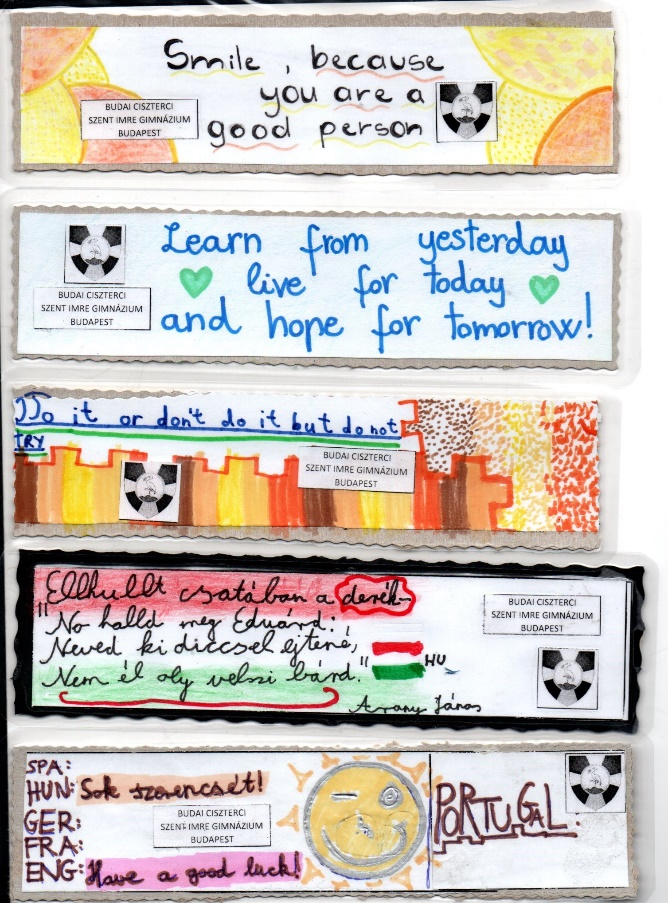 Smile, because
you are a
good person
BUDAI CISZTERCI
SZENT IMRE GIMNÁZIUM
BUDAPEST
Learn from yesterday
live for today
and hope for tomorrow!
BUDAI CISZTERCI
SZENT IMRE GIMNÁZIUM
BUDAPEST
Do it or don't do it but do not
TRY
BUDAI CISZTERCI
SZENT IMRE GIMNÁZIUM
BUDAPEST
Ellhullt csatában a derék-
"No halld meg Eduárd:
Neved ki diccsel ejtené,
Nem él oly velszi bárd."
HU
Arany János
BUDAI CISZTERCI
SZENT IMRE GIMNÁZIUM
BUDAPEST
SPA:
HUN: Sok szerencsét!
GER:
FRA:
ENG: Have a good luck!
BUDAI CISZTERCI
SZENT IMRE GIMNÁZIUM
BUDAPEST
PORTUGAL: